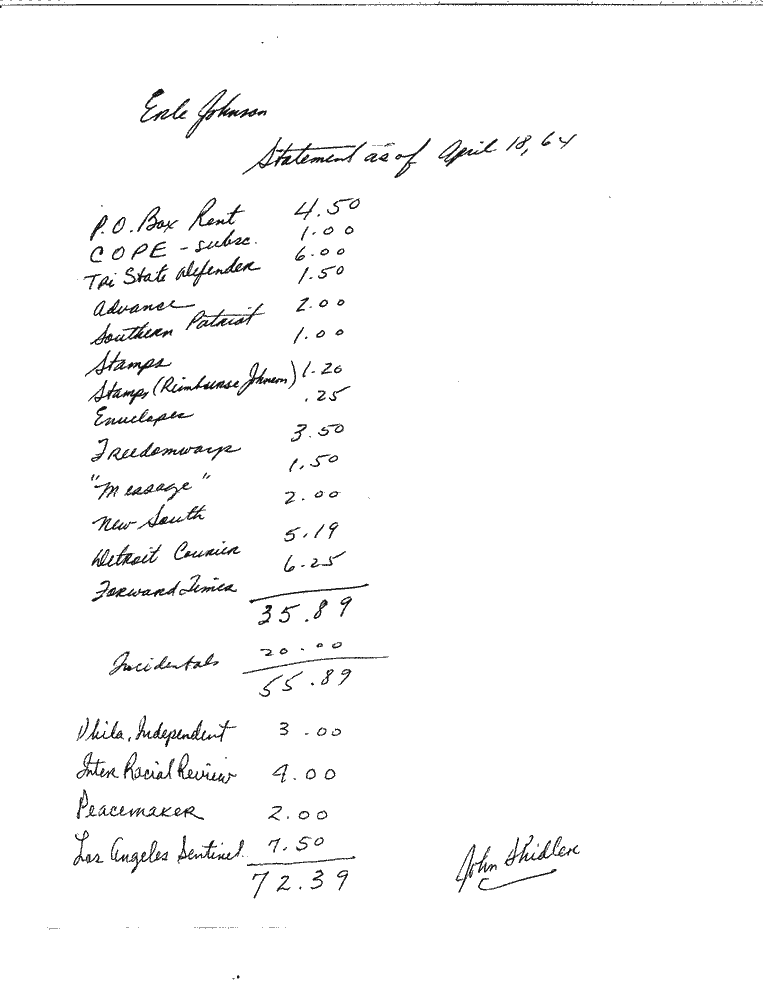 Erle Johnson
Statement as of April 18, 64
P.O. Box Rent 4.50
COPE - subsc. 1.00
Tri State Defender 6.00
Advance 1.50
Southern Patriot 2.00
Stamps 1.00
Stamps (Reimburse Johnson) 1.20
Envelopes .25
Freedomways 3.50
"Message" 1.50
New South 2.00
Detroit Courier 5.19
Forward Times 6.25
35.89
Incidentals 20.00
55.89
Phila. Independent 3.00
Inter Racial Review 4.00
Peacemaker 2.00
Los Angeles Sentinel 7.50
72.39
John Shidler